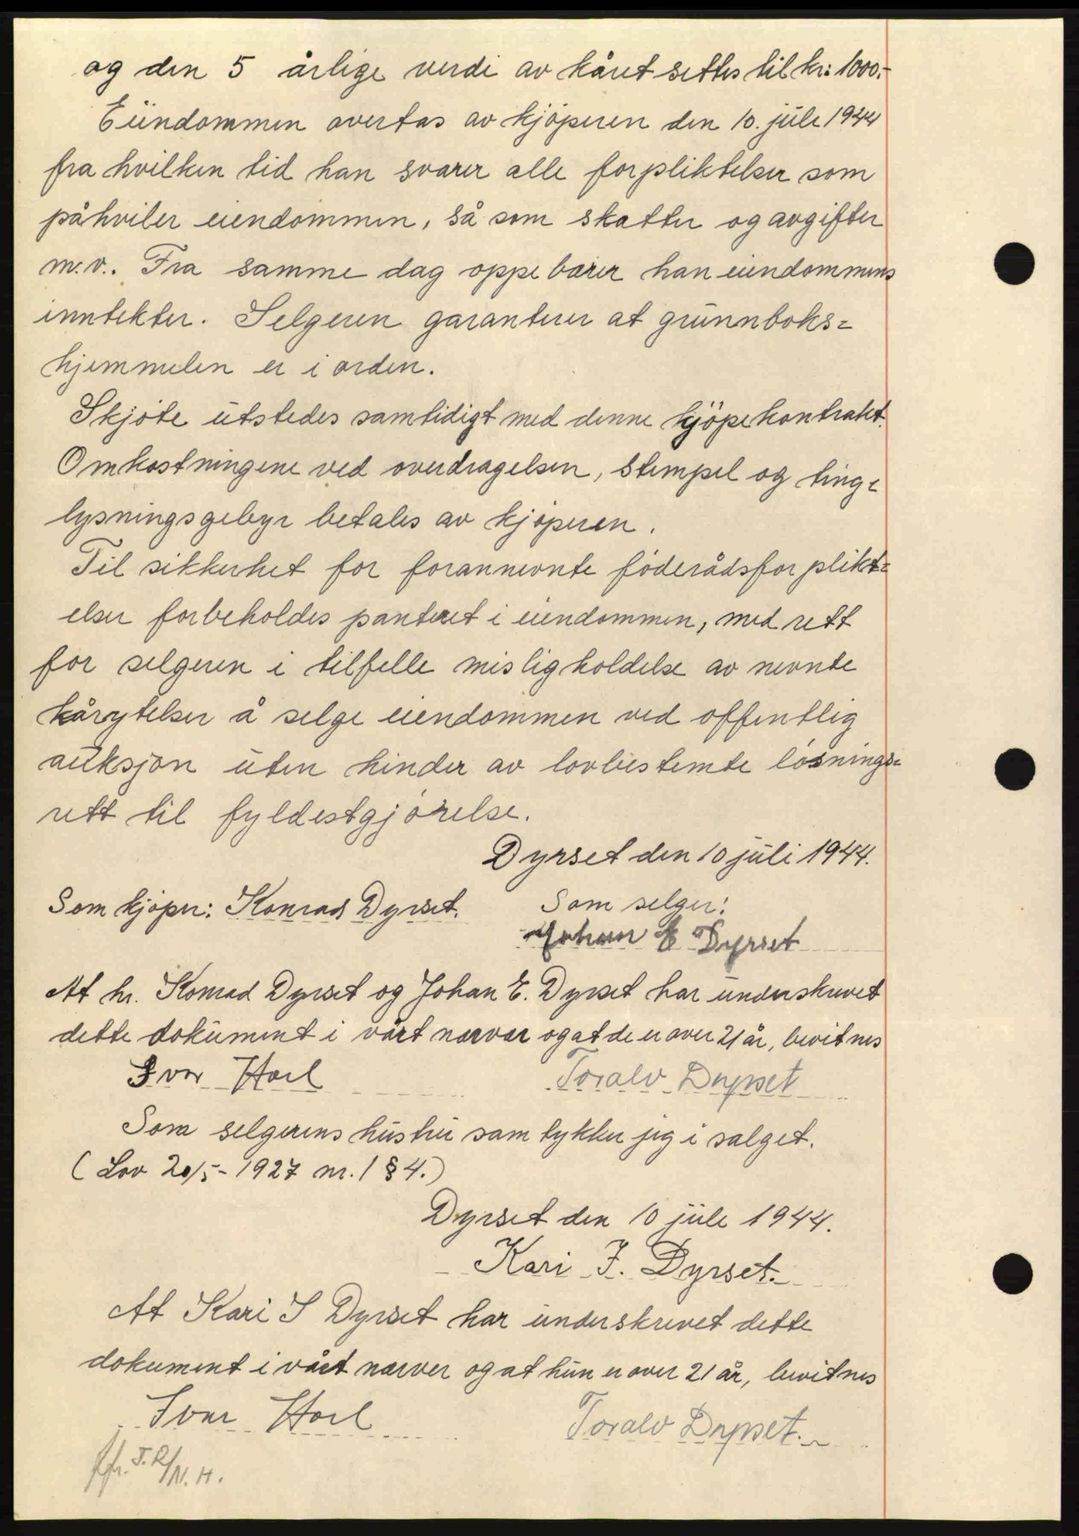 og den 5 årlige verdi av kåret settes til kr: 1000.-
Eiendommen overtas av kjøperen den 10. juli 1944
fra hvilken tid han svarer alle forpliktelser som
påhviler eiendommen, så som skatter og avgifter
m.v.. Fra samme dag oppebærer han eiendommens
inntekter. Selgeren garanterer at grunnboks=
hjemmelen er i orden.
Skjøte utstedes samtidigt med denne kjøpekontrakt.
Omkostningene ved overdragelsen, stempel og ting=
lysningsgebyr betales av kjøperen.
Til sikkerhet for forannevnte føderådsforplikt=
elser forbeholdes panteret i eiendommen, med rett
for selgeren i tilfelle misligholdelse av nevnte
kårytelser å selge eiendommen ved offentlig
auksjon uten hinder av lovbestemte løsnings=
rett til fyldestgjørelse.
Dyrset den 10 juli 1944.
Som kjøper: Konrad Dyrset. Som selger:
Johan E Dyrset
At hr. Konrad Dyrset og Johan E. Dyrset har underskrevet
dette dokument i vårt nærvær og at de er over 21 år, bevitnes
Ivar Hoel Toralv Dyrset
Som selgerens hustru samtykker jeg i salget.
( Lov 20/5- 1927 nr. 1 § 4.)
Dyrset den 10 juli 1944.
Kari J. Dyrset.
At Kari J Dyrset har underskrevet dette
dokument i vårt nærver og at hun er over 21 år, bevitnes
Ivar Hoel Toralv Dyrset.
ffr. J.R/N.H.